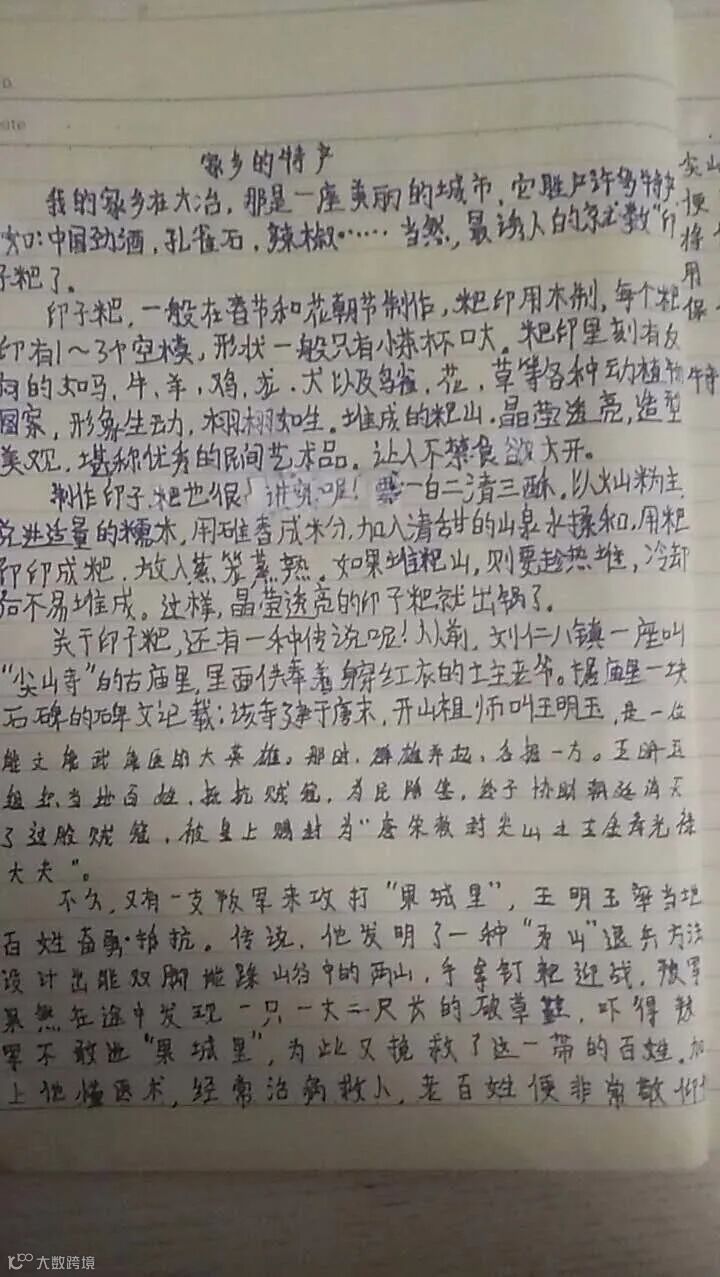 家乡的特产
我的家乡在大冶，那是一座美丽的城市，它胜产许多特产
如：中国劲酒，孔雀石，辣椒……当然，最诱人的就数“印
子粑了。
印子粑，一般在春节和花朝节制作，粑印用木制，每个粑
印有1～3个空模，形状一般只有小茶杯口大。粑印里刻有反
向的如马，牛、羊，鸡，龙，犬以及鸟雀，花，草等各种动植物
图案，形象生动，栩栩如生。堆成的粑山，晶莹透亮，造型
美观，堪称优秀的民间艺术品。让人不禁食欲大开。
制作印子粑也很讲究呢！要一白二清三酥。以籼米为主
兑进适量的糯米，用碓舂成米分，加入清甜的山泉水揉和，用粑
印印成粑，放入蒸笼蒸熟。如果堆粑山，则要趁热堆，冷却
后不易堆成。这样，晶莹透亮的印子粑就出锅了。
关于印子粑，还有一种传说呢！从前，刘仁八镇一座叫
“尖山寺”的古庙里，里面供奉着身穿红衣的土主老爷。据庙里一块
石碑的碑文记载：该寺建于唐末，开山祖师叫王明玉，是一位
能文能武能医的大英雄。那时，群雄并起，各据一方。王明玉
组织当地百姓，抵抗贼寇，为民除害，终于协助朝廷消灭
了这股贼寇，被皇上赐封为“唐宋敕封尖山土主金寿光禄
大夫”。
不久，又有一支叛军来攻打“果城里”，王明玉率当地
百姓奋勇抵抗。传说，他发明了一种“矛山”退兵方法
设计出能双脚能踩山谷中的两山，手拿钉耙迎战，叛军
果然在途中发现一只一丈二尺长的破草鞋，吓得叛
军不敢进“果城里”，为此又挽救了这一带的百姓。加
上他懂医术，经常治病救人，老百姓便非常敬仰他
尖山
便
将
用
保
特
大数跨境